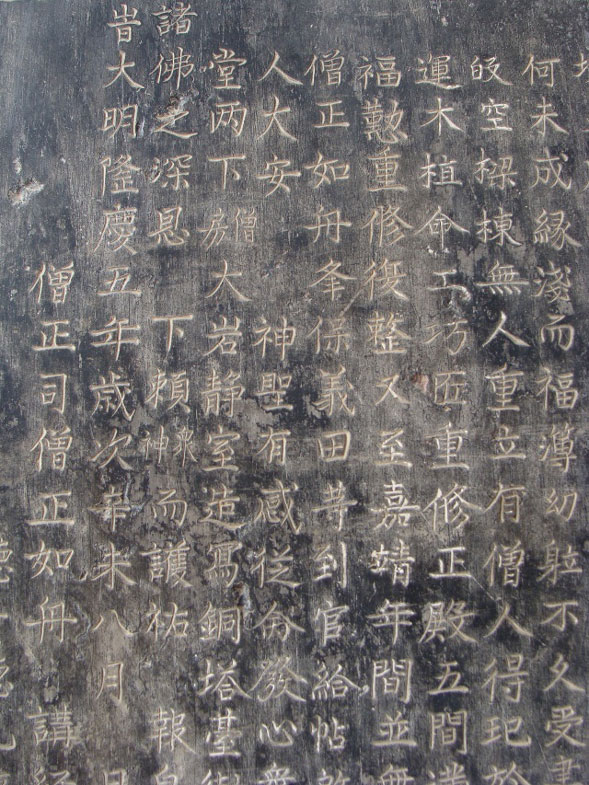 何未成縁淺而福薄幼躯不久受
皈空樑棟無人重立有僧人得玘於
運木植命工巧匠重修正殿五間
福勲重修復整又至嘉靖年間並無
僧正如舟夆保義田等到官給帖
人大安 神聖有感從命發心
堂两下僧房大岩静室造寫銅塔臺
諸佛之深恩 下頼衆神而護祐 報
旹大明隆慶五年歲次辛未八月 日
僧正司僧正如舟 講經